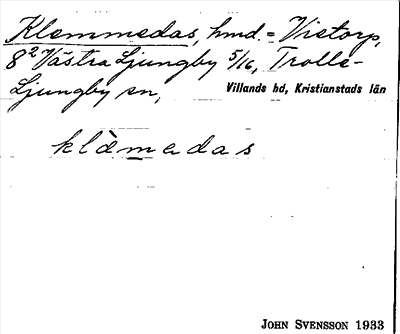 Klemmedas, hmd. = Vistorp,
8² Västra Ljungby 5/16, Trolle-
Ljungby sn,
Villands hd, Kristianstads län
klämedas
JOHN SVENSSON 1933